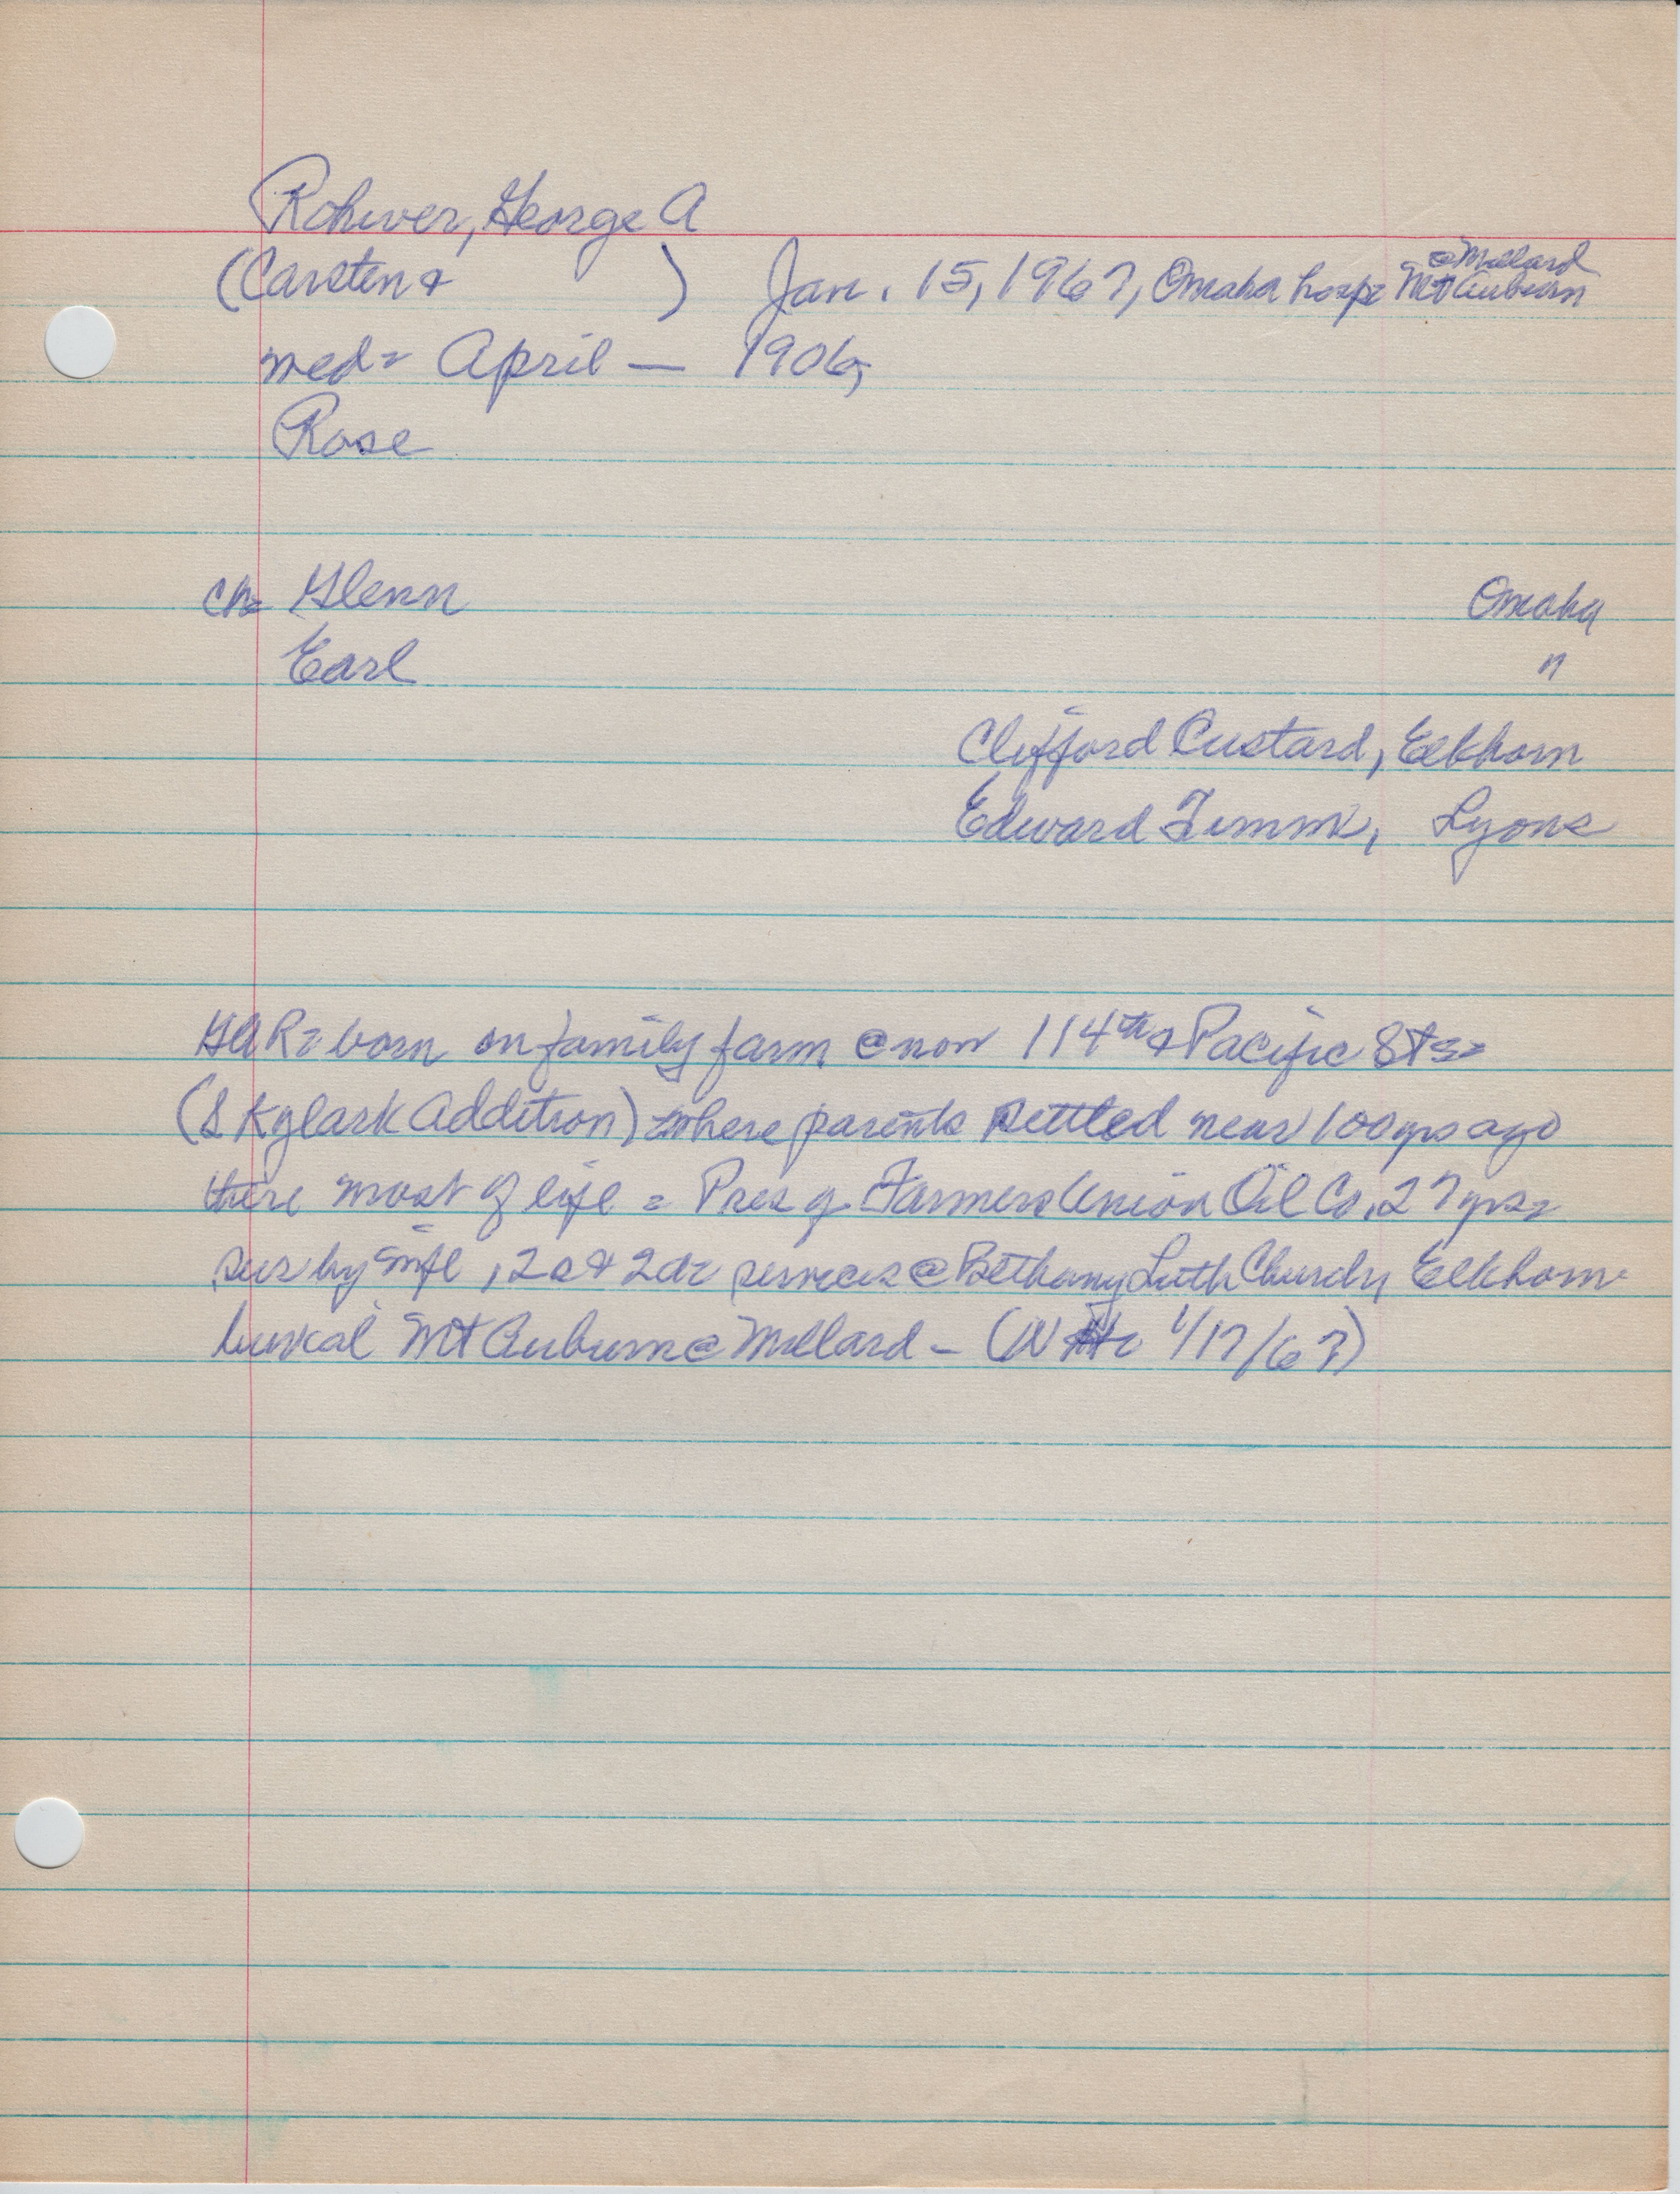 Rohwer, George A
@ Millard
(Carsten & ) Jan. 15, 1967, Omaha hosp= Mt Auburn
med= April — 1906,
Rose
ch= Glenn Omaha
Earl "
Clifford Custard, Elkhorn
Edward Timm, Lyons
GAR= born on family farm @ now 114th & Pacific Sts=
(Skylark Addition) where parents settled near 100 yrs ago
there most of life = Pres of Farmers Union Oil Co, 27 yrs=
sur by wife, 2s & 2d= services @ Bethany Luth Church, Elkhorn=
burial Mt Auburn @ Millard - (W 1/17/67)